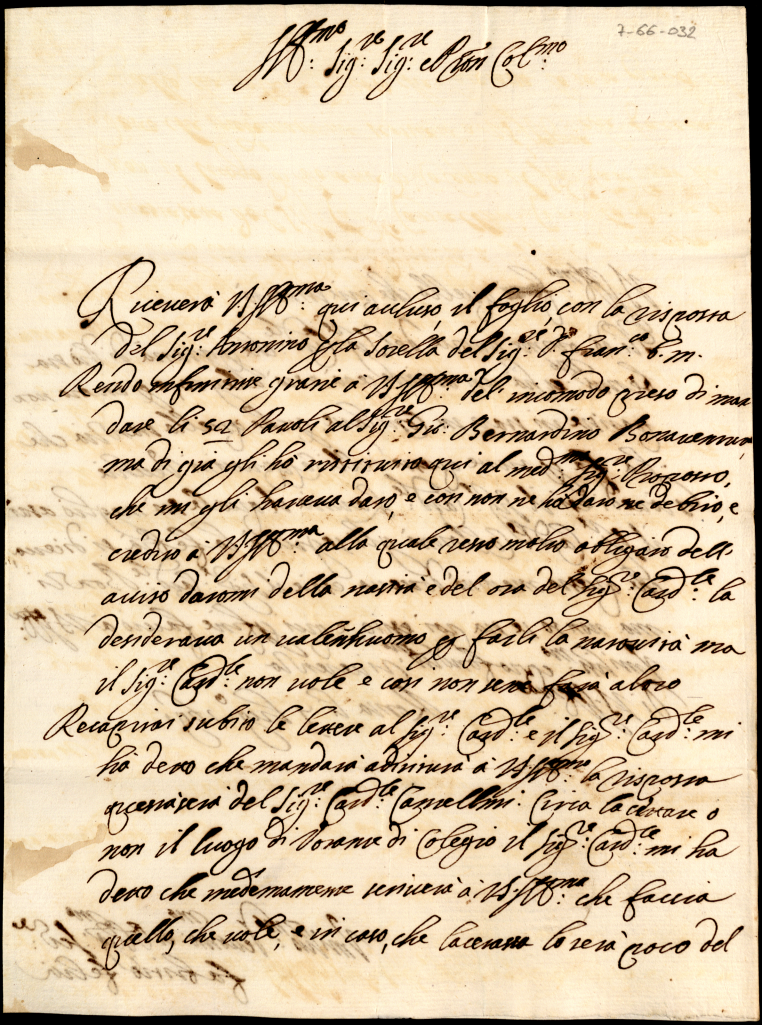 7-66-032
Ill:mo Sig:re Sig:re e Pron Col:mo
Riceverà V.S.Ill:ma qui acluso il foglio con la risposta
del Sig:re Antonino e la Sorella del Sig:re D. Fran:co b.m.
Rendo infinitime gratie à V.S.Ill:ma del incomodo preso di man
dare li 52 Pavoli al Sig:re Gio: Bernardino Bonaventura,
ma di già gli hò restituito qui al med:mo Sig:re Proposto,
che mi gli haveva dato, e così non ne hà dato ne debito, e
credito à V.S.Ill:ma alla quale resto molto obligato dell'
aviso datomi della nascita e del ora del Sig:re Card:le la
desiderava un valenthuomo per farli la natività ma
il Sig:re Card:le non vole e così non farà altro
Recapitai subito le lettere al Sig:re Card:le e il Sig:re Card:le mi
hà detto che mandarà adiritura à V.S.Ill:ma la risposta
questa sera del Sig:re Card:le Circa la cettare o
non il luogo di Colegio il Sig:re Card:le mi ha
detto che medemamente scriverà à V.S.Ill:ma che faccia
quello, che vole, e in caso, che lacettasse lo serà poco del